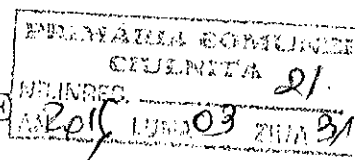 PRIMARIA COMUNEI
CIULNITA
NR.INREG. 21.
LUNA 03 ZIUA 31